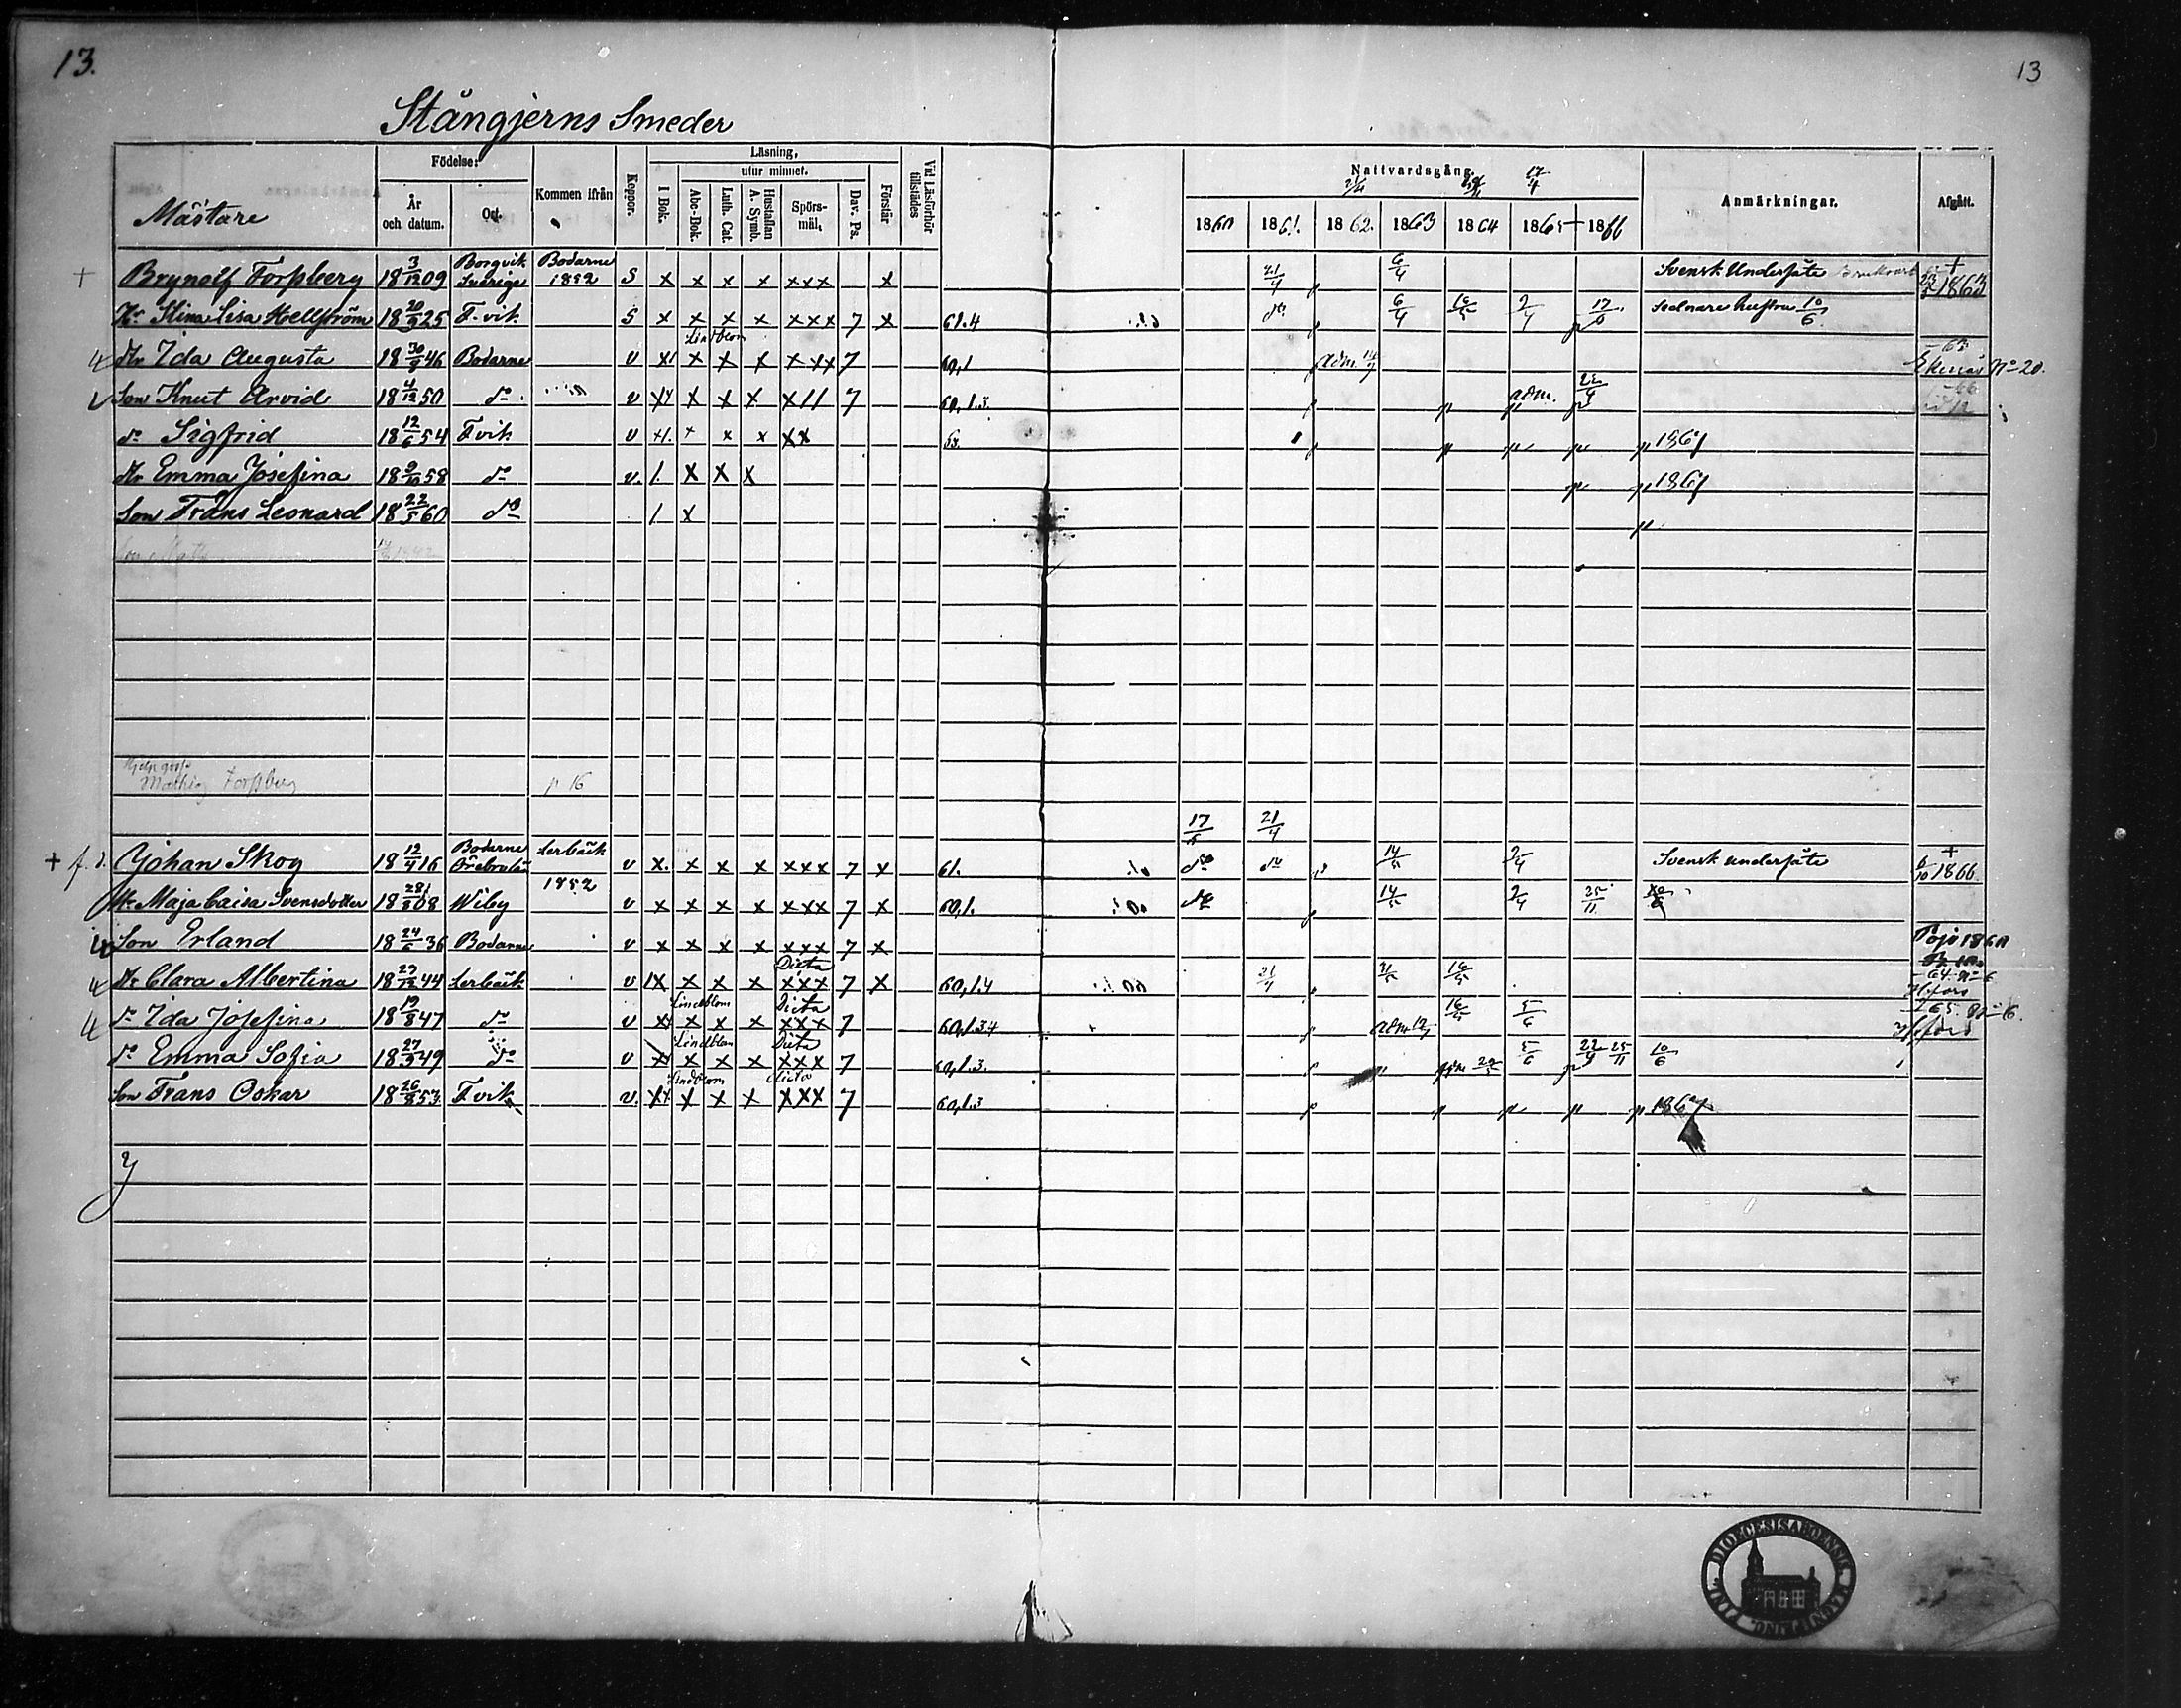 13.
13
Stångjerns Smeder
Mästare
Födelse:
År och datum.
Ort.
Kommen ifrån
Koppor.
Läsning,
utur minnet.
I Bok.
Abc-Bok.
Luth. Cat.
Hustaflan A. Symb.
Spörs-mål,
Dav. Ps.
Förstår
Vid Läsförhör tillstädes
Nattvardsgång. 17/4
1860 1861. 1862. 1863 1864 1865 1866
Anmärkningar.
Afgått.
+ Brynolf Forssberg 18 3/12 09 Borgvik Sverige Bodarne 1852 S x x x x xxx x 21/4 6/4 Svensk Undersåte + 1863
Hu Stina Lisa Hellström 18 20/9 25 F.vik S x x x x xxx 7 x 61.4 do 6/4 2/4 17/6 sednare hustru 10/6
Lindblom
Dr Ida Augusta 18 30/9 46 Bodarne v x x x x xxx 7 60,1 adm. Ekenäs No 20.
Son Knut Arvid 18 4/12 50 do v x x x x x// 7 60,1.3. adm.
do Sigfrid 18 12/6 54 Fvik v x x x xx 1867
Dr Emma Josefina 18 9/10 58 do v. /. x x x 1867
Son Frans Leonard 18 22/5 60 do / x
Hjelpgoss
Mathias Forssberg p 16
17/6 21/4
+ f.d. Johan Skog 18 12/4 16 Bodarne Örebrolän Lerbäck v x. x x x xxx 7 x 61. do do 14/5 2/4 Svensk undersåte + 6/10 1866
Hu Maja Caisa Svensdotter 18 28/8 08 Wiby 1852 v x x x x xxx 7 x 60,1. do 14/5 2/4 25/11
Son Erland 18 24/6 36 Bodarne v x x x x xxx 7 x Pojo 1860
Dicta
Dr Clara Albertina 18 27/12 44 Lerbäck v /x x x x xxx 7 x 60,1.4 21/4 64 No 6 Hfors
Lindblom Dicta
do Ida Josefina 18 19/8 47 do v x x x x xxx 7 60,1.34 adm 5/6 65. 6.
Lindblom Dicta
do Emma Sofia 18 27/9 49 do v x x x x xxx 7 60,1.3. 5/6 22/4 25/11 10/6
Lindblom dicta
Son Frans Oskar 18 26/8 53 Fvik v. x x x x xxx 7 60,1.3 1867
DIOECESIS ABOENSIS MAGNI PRINC. FINL.